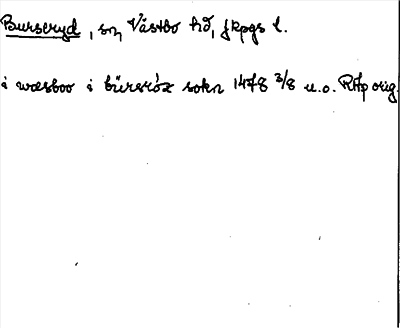 Burseryd, sn, Västbo hd, Jkpgs l.
i wæsboo i bürsröz sokn 1478 3/8 u.o. RAp orig.